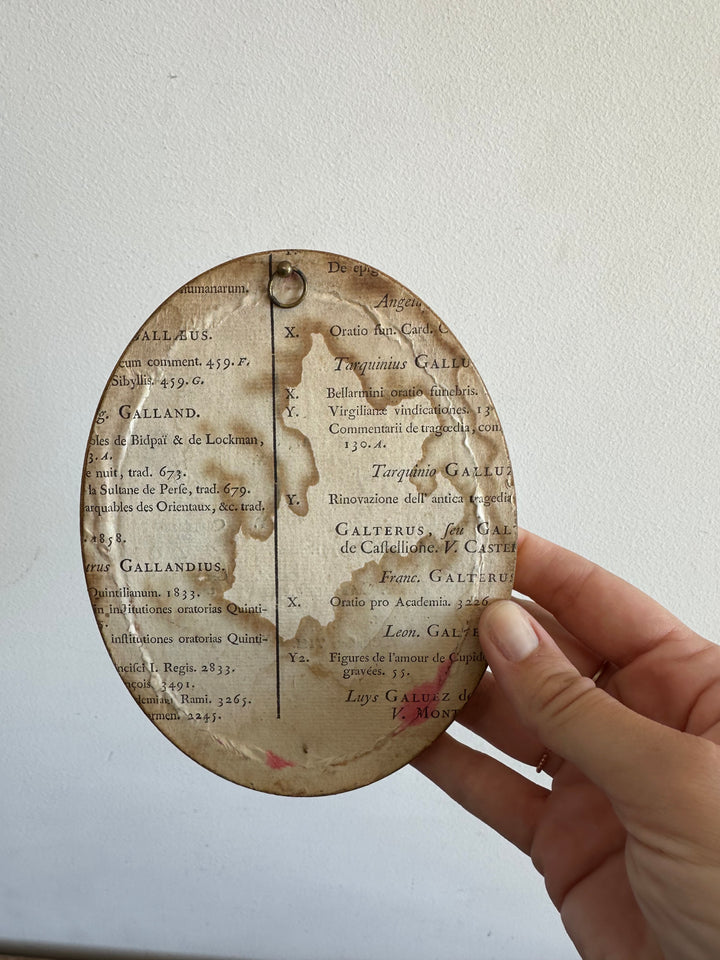 humanarum.
GALLÆUS.
cum comment. 459. F.
Sibyllis. 459. G.
g. GALLAND.
bles de Bidpaï & de Lockman,
3. A.
e nuit, trad. 673.
la Sultane de Perſe, trad. 679.
arquables des Orientaux, &c. trad.
1858.
trus GALLANDIUS.
Quintilianum. 1833.
in inſtitutiones oratorias Quinti-
inſtitutiones oratorias Quinti-
nciſci I. Regis. 2833.
nçois. 3491.
demiæ Rami. 3265.
ormen. 2245.
De epig
Angelu
X. Oratio fun. Card. C
Tarquinius GALLU
X. Bellarmini oratio funebris.
Y. Virgilianæ vindicationes. 13
Commentarii de tragœdia, con
130. A.
Tarquinio GALLUZ
Y. Rinovazione dell' antica tragedia
GALTERUS, ſeu GALT
de Caſtellione. V. CASTEL
Franc. GALTERUS
X. Oratio pro Academia. 3226
Leon. GALTE
Y2. Figures de l'amour de Cupido
gravées. 55.
Luys GALUEZ de
V. MONT